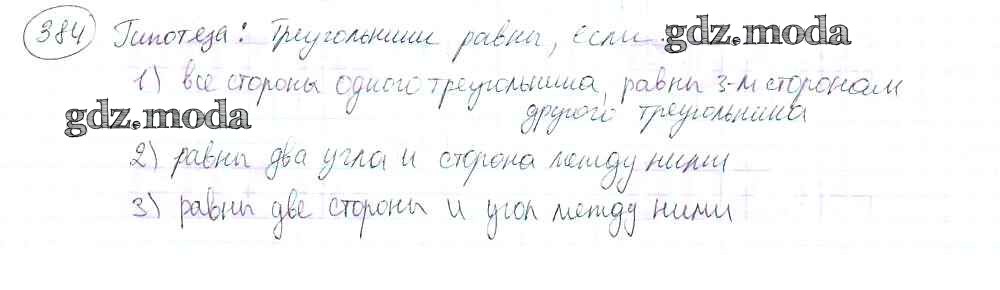 384 Гипотеза: Треугольники равны, если: gdz.moda
1) все стороны одного треугольника, равны 3-м сторонам
другого треугольника
gdz.moda
2) равны два угла и сторона между ними
3) равны две стороны и угол между ними